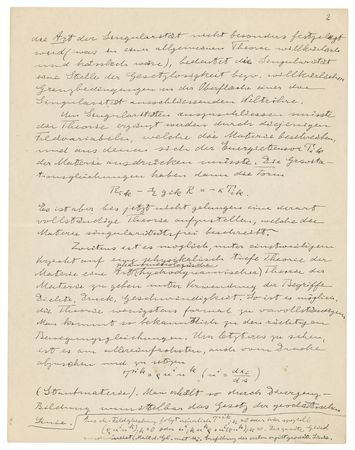 2
die Art der Singularität nicht besonders festgelegt
wird (was in einer allgemeinen Theorie willkürlich
und hässlich wäre), bedeutet die Singularität
eine Stelle der Gesetzlosigkeit bezw. willkürlicher
Grenzbedingungen an der Oberfläche einer die
Singularität ausschliessenden
Um Singularitäten auszuschliessen müsste
die Theorie ergänzt werden durch diejenigen
Feldvariabeln, welche die Materie beschreiben,
und aus denen sich der Energietensor Tik
der Materie ausdrücken müsste. Die Gravita-
tionsgleichungen haben dann die Form
Rik - ½ gik R = -κ Tik.
Es ist aber bis jetzt nicht gelungen eine derart
vollständige Theorie aufzustellen, welche die
Materie singularitätsfrei beschreibt.
Zweitens ist es möglich, unter einstweiligem
Verzicht auf eine physikalisch tiefe Theorie der
phänomenologische
Materie eine Art (hydrodynamischer) Theorie der
Materie zu geben unter Verwendung der Begriffe
Dichte, Druck, Geschwindigkeit. So ist es möglich,
die Theorie wenigstens formal zu vervollständigen.
Man kommt so bekanntlich zu den richtigen
Bewegungsgleichungen. Um letzteres zu sehen,
ist es am allereinfachsten, auch vom Drucke
abzusehen und zu setzen
Tik = ρ ui uk (ui = dxi/ds)
(Staubmaterie). Man erhält so durch Divergenz-
Bildung unmittelbar das Gesetz der geodätischen
Linie.
Aus der Feldgleichung folgt